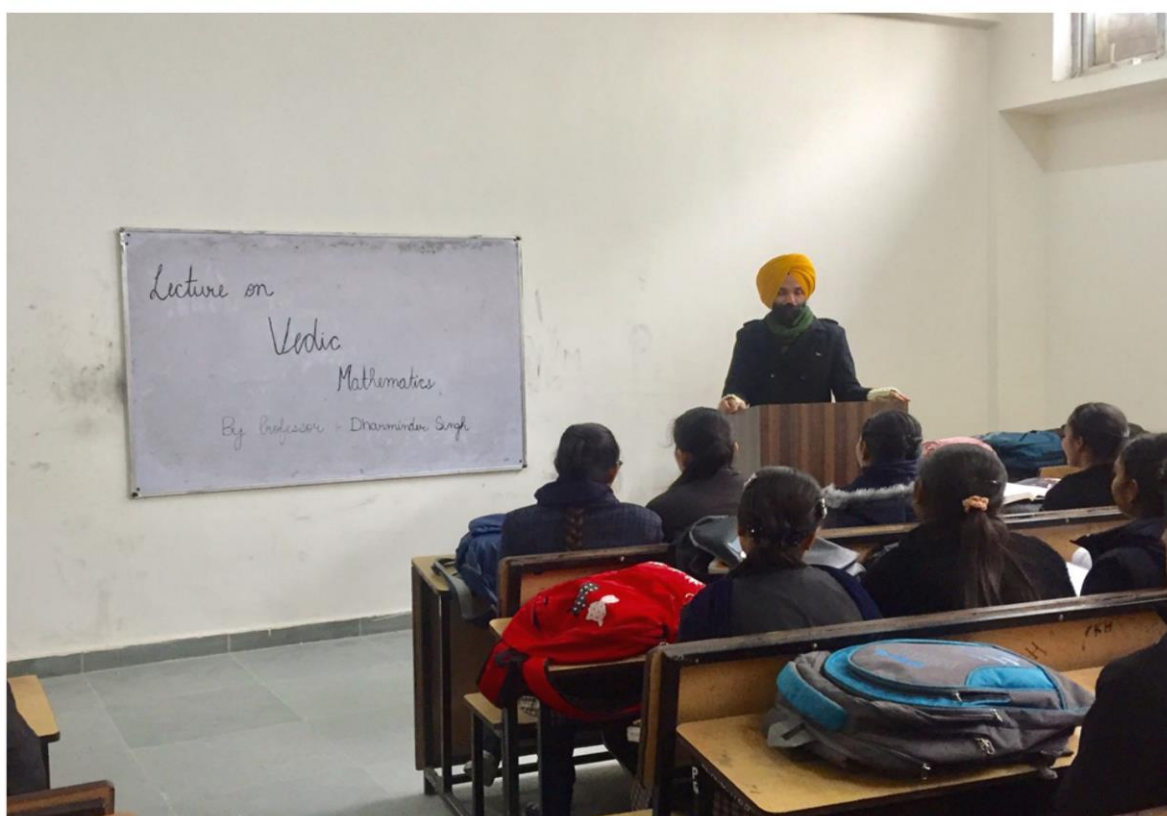 Lecture on
Vedic
Mathematics
By Professor - Dharminder Singh